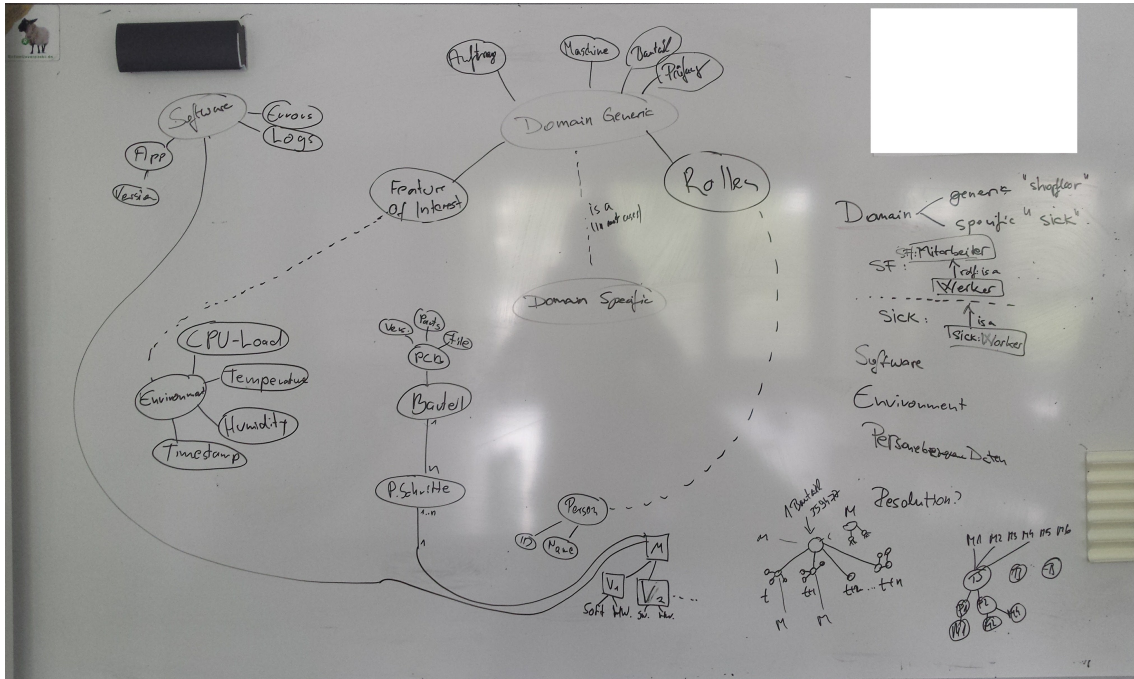 Software
Errors
Logs
App
Version
Auftrag
Maschine
Bauteil
Prüfung
Domain Generic
Feature
Of Interest
Rollen
is a
Domain Specific
CPU-Load
Environment
Temperature
Humidity
Timestamp
Vers.
Parts
File
PCB
Bauteil
1
n
P.Schritte
1..n
1
Person
ID
Name
M
V1
V2
.....
Soft
HW.
SW.
HW.
Domain
generic "shopfloor"
specific "Sick"
SF:
SF:Mitarbeiter
rdf:is a
Worker
Sick:
is a
Sick:Worker
Software
Environment
Resolution?
1 Bauteil
M
M
t
t+1
t+2
... t+n
M
M
M1 M2 M3 M4 M5 M6